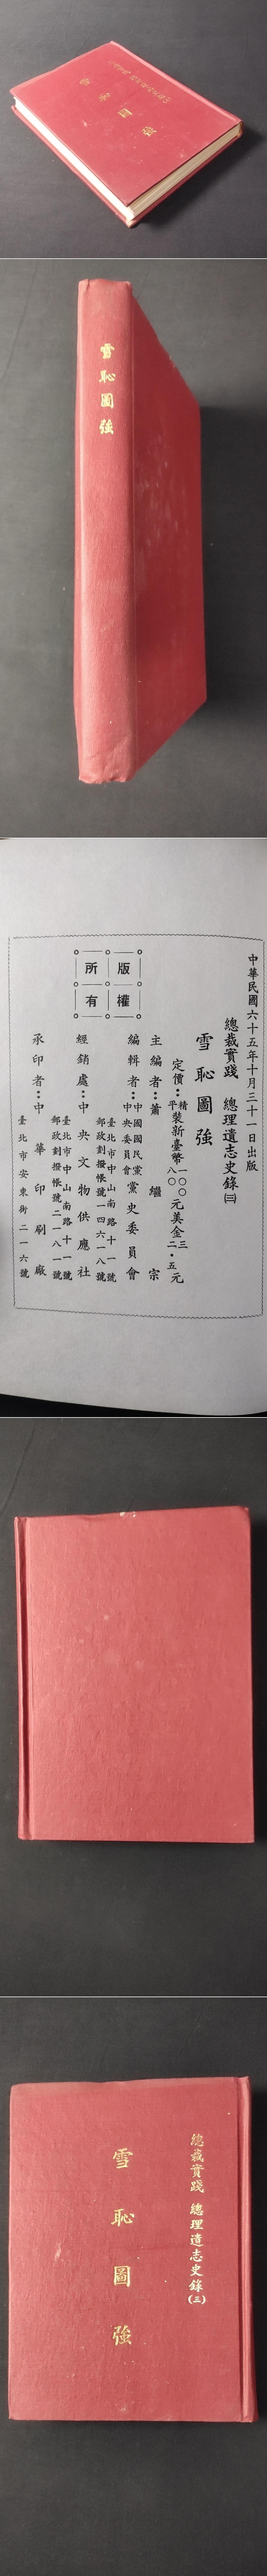 雪恥圖強
雪恥圖強
中華民國六十五年十月三十一日出版
總裁實踐 總理遺志史錄㈢
雪恥圖強
定價：精裝新臺幣一〇〇元美金三元
平裝新臺幣八〇元美金二・五元
主編者：蕭繼宗
編輯者：中國國民黨中央委員會黨史委員會
臺北市中山南路十一號
郵政劃撥帳號一四六一八號
經銷處：中央文物供應社
臺北市中山南路十一號
郵政劃撥帳號二一八一號
承印者：中華印刷廠
臺北市安東街二一六號
版權所有
總裁實踐 總理遺志史錄(三)
雪恥圖強